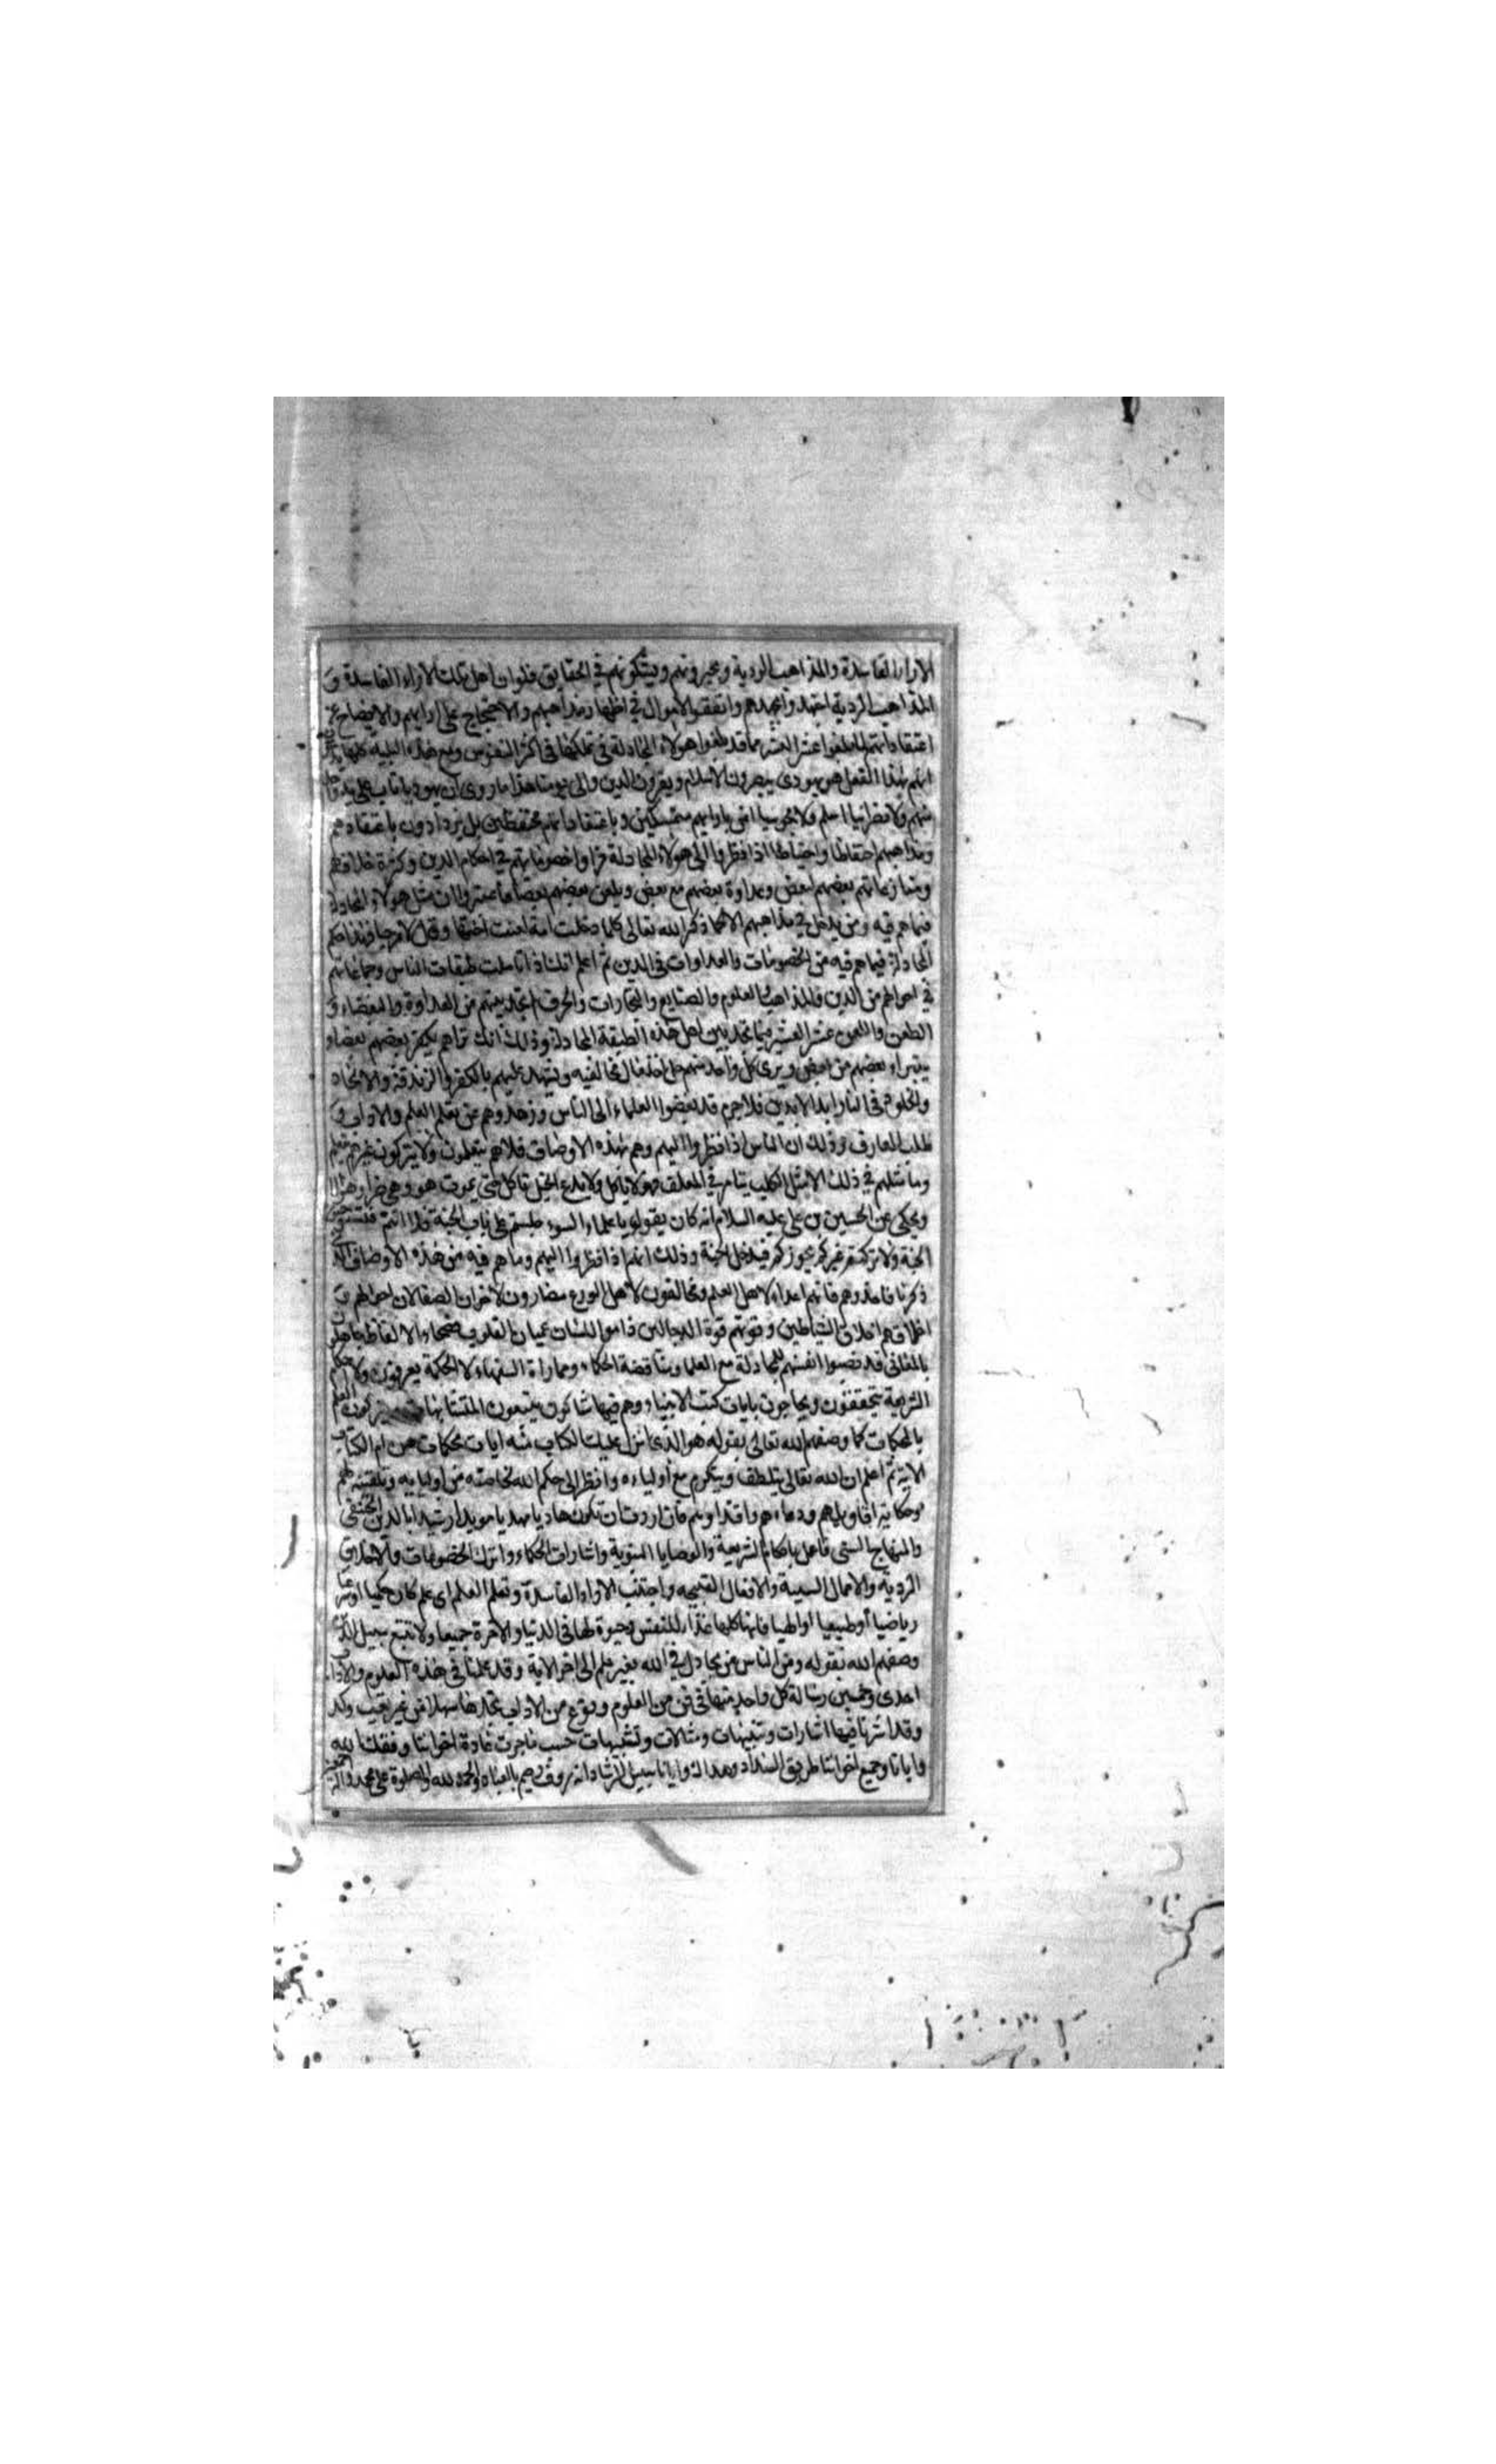 الاراء الفاسدة والمذاهب الردية ويحيرونهم ويشككونهم في الحقايق فلوان اهل تلك الاراء الفاسدة و
المذاهب الردية اجتهدوا بجهدهم وانفقوا الاموال في اظهار مذاهبهم والاحتجاج على ارايهم والايضاح عن
اعتقاداتهم لما بلغوا عشر العشر مما قد بلغوا هولاء المجادلة في تمكنها في اكثر النفوس ومع هذه البلية كلها
انهم بهذا الفعل ينصرون الاسلام ويقوون الدين والى يومنا هذا ما روى ان يهوديا تاب على يد واحد
منهم ولا نصرانيا اسلم ولا مجوسيا امن باراىهم متمسكين وباعتقاداتهم محتفظين بل يزدادون باعتقادهم
ومذاهبهم احتفاظا واحتياطا اذا نظروا الى هولاء المجادلة وراوا خصوماتهم في احكام الدين وكثرة خلافهم
ومنازعاتهم بعضهم لبعض وعداوة بعضهم مع بعض ويلعن بعضهم بعضا مثل هولاء المجادلة
فيما هم فيه ومن يدخل في مذاهبهم الا كما ذكر الله تعالى كلما دخلت امة لعنت اختها وقال لا مرحبا فهذا حكم
المجادلة فيما هم فيه من الخصومات والعداوات في الدين ثم اعلم انك اذا تاملت طبقات الناس وجماعاتهم
في احوالهم من الدين والمذاهب والعلوم والصنايع والتجارات والحرف لم تجد بينهم من العداوة والبغضاء و
الطعن واللعن عشر العشير فيما تجد بين اهل هذه الطبقة المجادلة وذلك انك تراهم يكفر بعضهم بعضا و
يتبراء بعضهم من بعض ويرى كل واحد منهم مخالفيه ويشهد عليهم بالكفر والزندقة والالحاد
والخلود في النار ابد الابدين فلا جرم قد بغضوا العلماء الى الناس وزهدوهم عن تعلم العلم والاداب و
طلب المعارف وذلك ان الناس اذا نظروا اليهم وهم بهذه الاوصاف فلا هم يتعلمون ولا يتركون غيرهم يتعلم
وما مثلهم في ذلك الا مثل الكلب ينام في المعلف فهو لا ياكل ولا يدع الخيل تاكل حتى يموت هو وهي ضرا وهزالا
ويحكى عن الحسين بن علي عليه السلام انه كان يقول يا علماء السوء جلستم على باب الجنة فلا انتم
الجنة ولا تركتم غيركم يجوزكم فيدخل الجنة وذلك انهم اذا نظروا اليهم وما هم فيه من هذه الاوصاف التي
ذكرنا فاحذرهم فانهم اعداء لاهل العلم ومخالفون لاهل الورع مضارون لاخوان الصفا لان
اخلاقهم اخلاق الشياطين وقوتهم قوة الدجالين ذاموا اللسان عميان القلوب فصحاء الالفاظ جاهلون
بالمعاني قد نصبوا انفسهم للمجادلة مع العلماء ومناقضة الحكماء ومماراة السفهاء لا الحكمة يعرفون ولا احكام
الشريعة يتحققون ويحاجون بايات كتب الانبياء وهم فيها شاكون يتبعون المتشابهات ويتركون العلم
بالمحكمات كما وصفهم الله تعالى بقوله هو الذي انزل عليك الكتاب منه ايات محكمات هن ام الكتاب
الاية ثم اعلم ان الله تعالى يتلطف ويتكرم مع اولياءه وانظر الى حكم الله لخاصته من اوليايه وتلقينه لهم
وحكاية اقاويلهم ودعاءهم واقتد اوبهم فان اردت ان تكون هاديا مهديا مويدا رشيدا بالدين الحنيفي
والمنهاج السني فاعمل باحكام الشريعة والوصايا النبوية واشارات الحكماء واترك الخصومات والاخلاق
الردية والاعمال السيية والافعال القبيحه واجتنب الاراء الفاسدة وتعلم العلم اى علم كان حكميا او شرعيا
رياضيا او طبيعيا او الهيا فانها كلها غذاء للنفس وحيوة لها في الدنيا والاخرة جميعا ولا تتبع سبيل الذين
وصفهم الله بقوله ومن الناس من يجادل في الله بغير علم الى اخر الاية وقد عملنا في هذه العلوم والاداب
احدى وخمسين رسالة كل واحد منها في فن من العلوم ونوع من الاداب تجدها سهلا من غير تعب وكد
وقد اشرنا فيها اشارات وتنبيهات ومثالات وتشبيهات حسب ما جرت عادة اخواننا وفقك الله
وايانا وجميع اخواننا طريق السداد وهداك وايانا سبيل الرشاد انه روف رحيم بالعباد والحمد لله والصلوة على محمد واله اجمعين